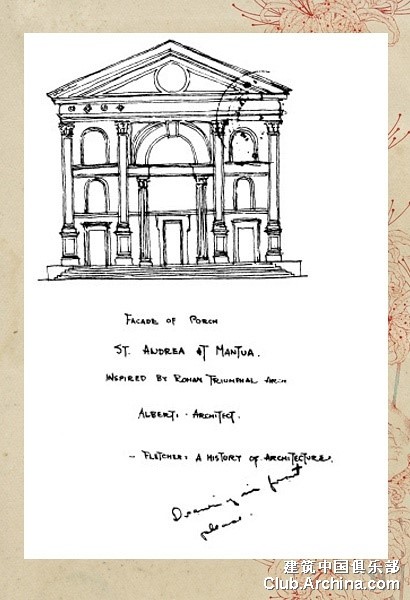 FACADE OF PORCH
ST. ANDREA AT MANTUA.
INSPIRED BY ROMAN TRIUMPHAL ARCH
ALBERTI - ARCHITECT.
- FLETCHER: A HISTORY OF ARCHITECTURE.
in front
please.
建筑中国俱乐部
Club.Archina.com